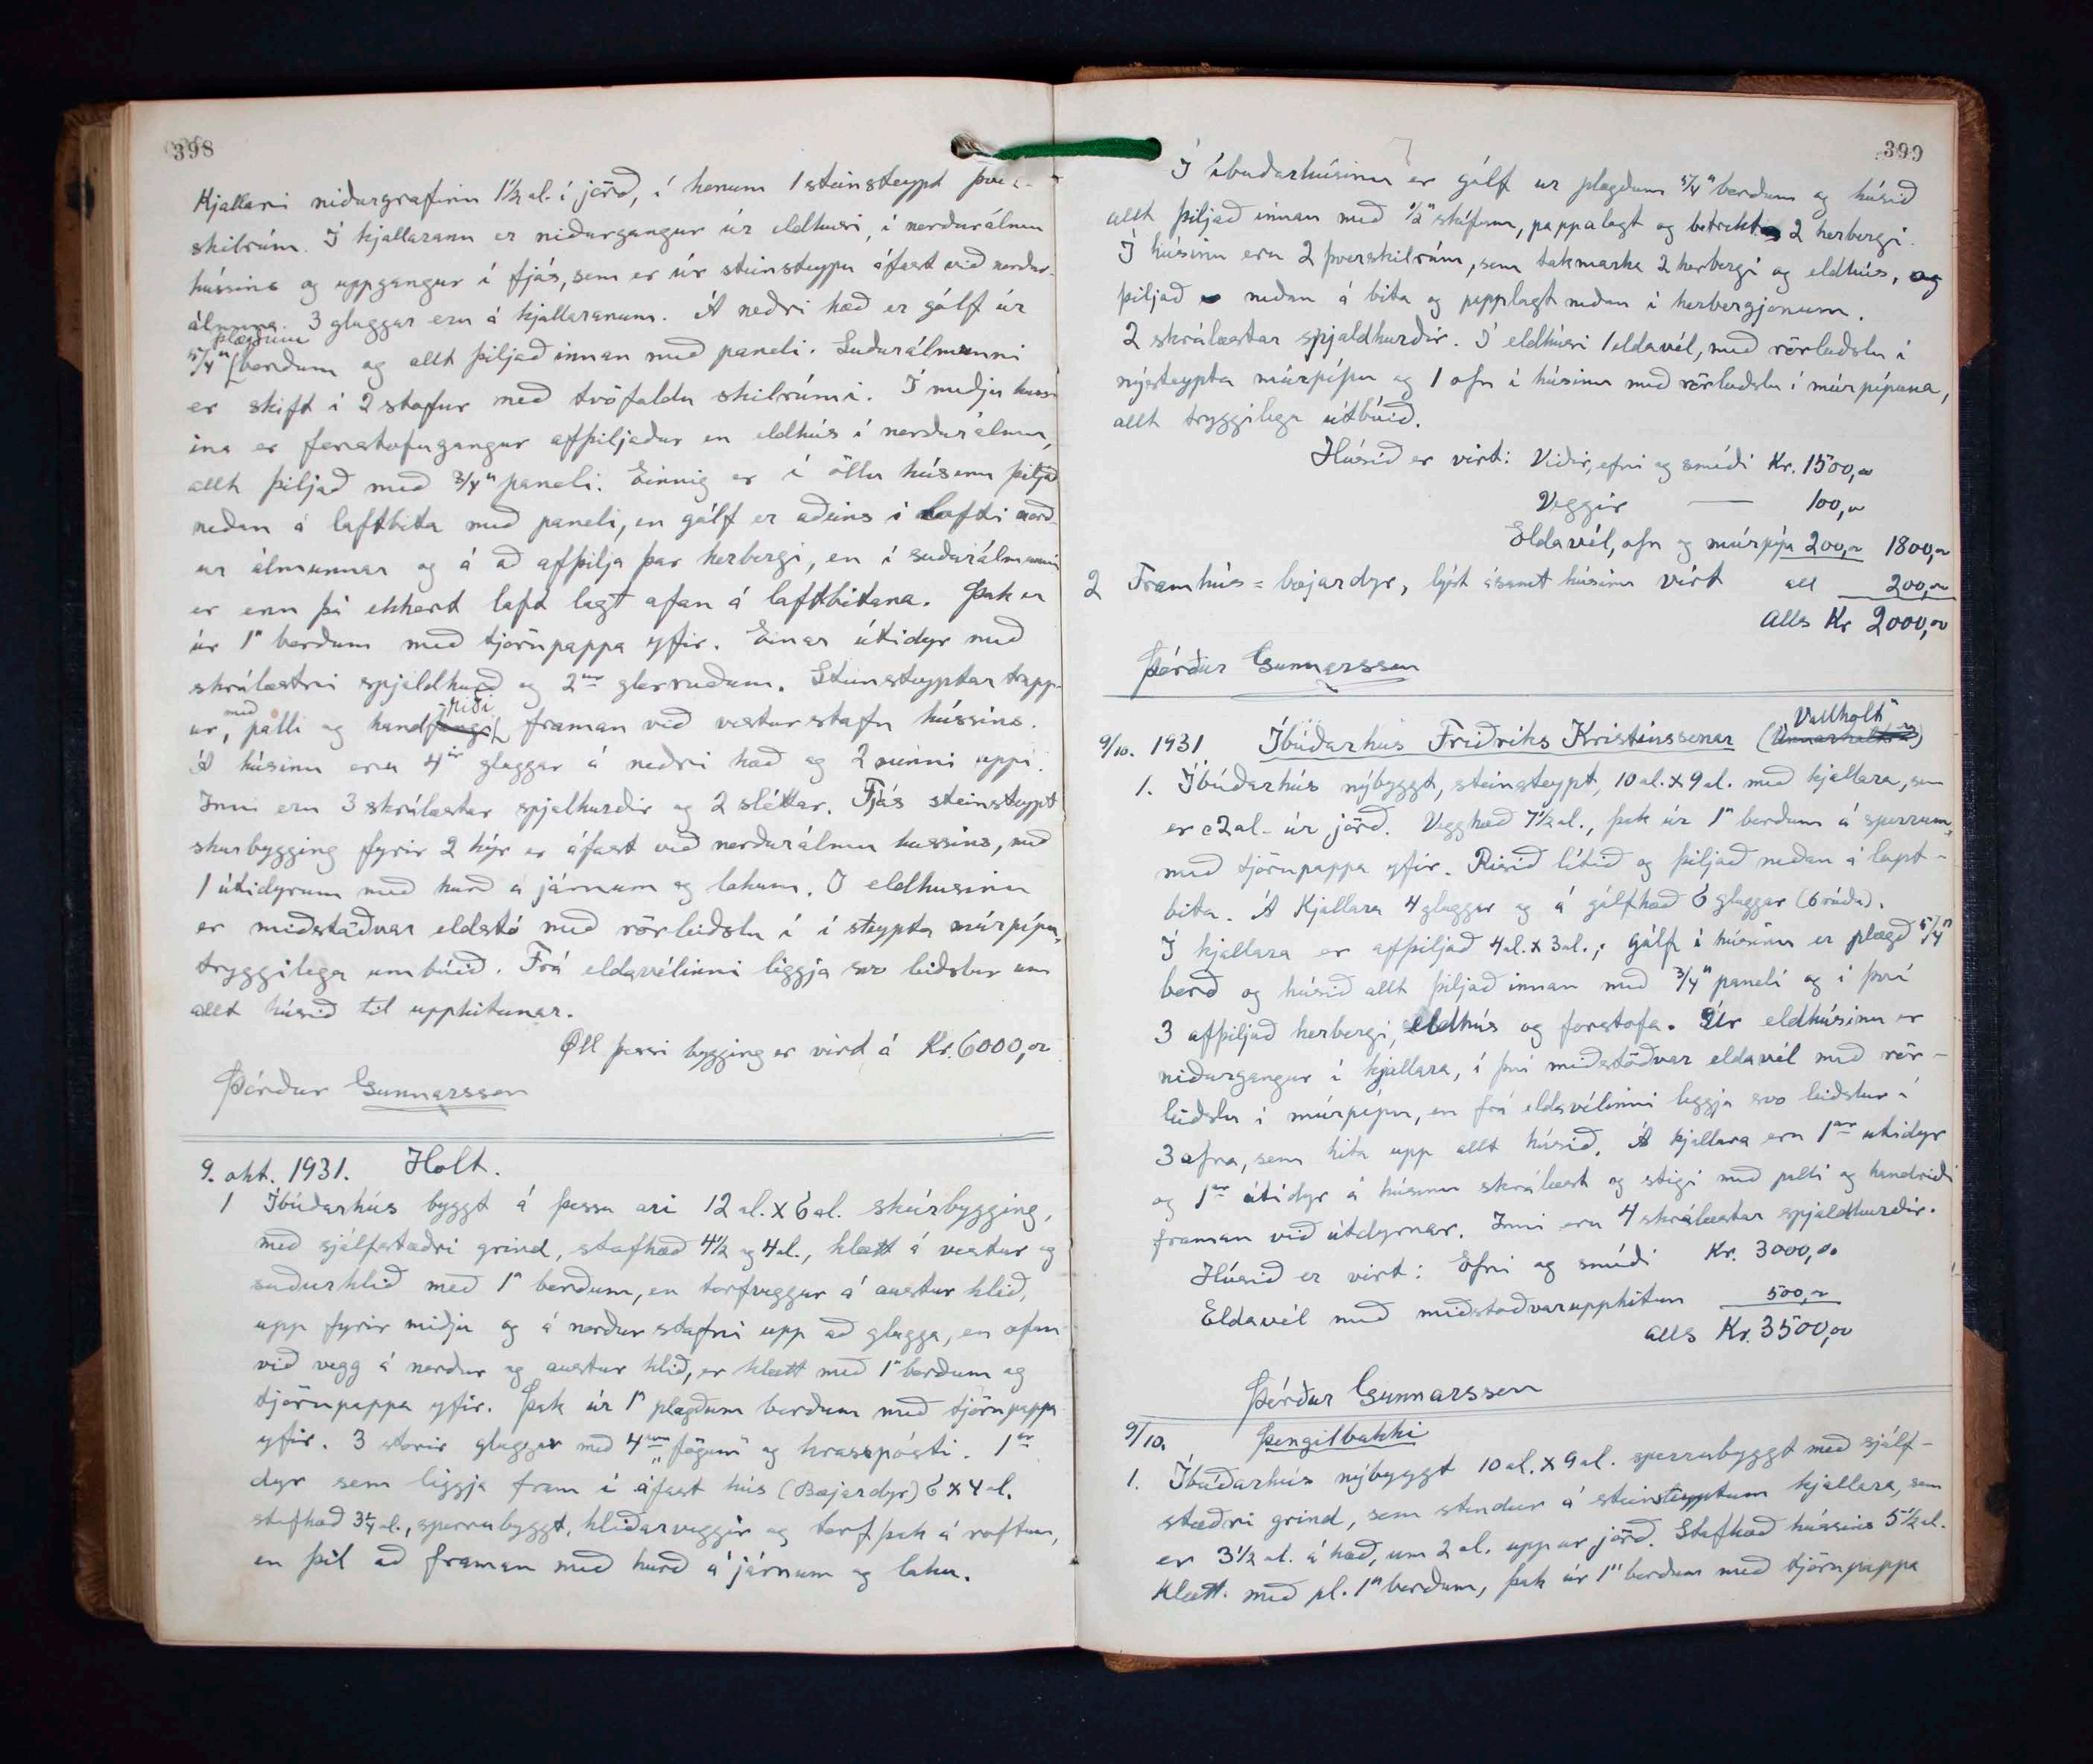 398
Kjallari niðurgrafinn 1½ al. í jörð, í honum 1 steinsteypt þver-
skilrúm. Í kjallarann er niðurgangur úr eldhusi, í norðurálmu
hússins og uppgangur í fjós, sem er úr steinsteypu áfast við norður-
álmuna. 3 gluggar eru á kjallaranum. Á neðri hæð er gólf úr
plægðum
5/4" borðum og allt þiljað innan með paneli. Suðurálmunni
er skift í 2 stofur með tvöföldu skilrúmi. Í miðju húss-
ins er forstofugangur afþiljaður en eldhús í norðurálmu,
allt þiljað með 3/4" paneli. Einnig er í öllu húsinu þiljað
neðan á loftbita með paneli, en gólf er aðeins í lofti norð-
ur álmunnar og á að afþilja þar herbergi, en í suðurálmunni
er enn þá ekkert loft lagt ofan á loftbitana. Þak er
úr 1" borðum með tjörupappa yfir. Einar útidyr með
skrálæstri spjaldhurð og 2ur glerruðum. Steinsteyptar tröpp-
ur, með palli og handriði framan við vesturstafn hússins.
Á húsinu eru 4ir gluggar á neðri hæð og 2 minni uppi.
Inni eru 3 skrálæstar spjalhurðir og 2 sléttar. Fjós steinsteypt
skurbygging fyrir 2 kýr er áfast við norðurálmu hússins, með
1 útidyrum með hurð á járnum og lokum. Í eldhusinu
er miðstöðvar eldstó með rörleiðslu í í steypta múrpípu,
tryggilega umbúið. Frá eldavélinni liggja svo leiðslur um
allt húsið til upphitunar.
Öll þessi bygging er virð á Kr. 6000,00
Þórður Gunnarsson
9. okt. 1931. Holt.
1 Íbúðarhús byggt á þessu ári 12 al. x 6 al. skúrbygging,
með sjálfstæðri grind, stafhæð 4½ og 4 al., klætt á vestur og
suðurhlið með 1" borðum, en torfveggur á austur hlið,
upp fyrir miðju og á norður stafni upp að glugga, en ofan
við vegg á norður og austur hlið, er klætt með 1" borðum og
tjörupappa yfir. Þak úr 1" plægðum borðum með tjörupappa
yfir. 3 stórir gluggar með 4um „fögum" og krosspósti. 1ar
dyr sem liggja fram í áfast hús (Bæjardyr) 6 x 4 al.
stafhæð 3¼ al., sperrubyggt, hliðarveggir og torfþak á röftum,
en þil að framan með hurð á járnum og loku.
399
Í íbuðarhúsinu er gólf ur plægðum 5/4" borðum og húsið
allt þiljað innan með ½" skífum, pappalagt og betrekt 2 herbergi.
Í húsinu eru 2 þverskilrúm, sem takmarka 2 herbergi og eldhús, og
þiljað neðan á bita og papplagt neðan í herbergjonum.
2 skrálæstar spjaldhurðir. Í eldhúsi 1 eldavél, með rörleiðslu í
nýsteypta múrpípu og 1 ofn í húsinu með rörleiðslu í múrpípuna,
allt tryggilega útbúið.
Húsið er virt: Viðir, efni og smíði Kr. 1500,00
Veggir — 100,00
Eldavél, ofn og múrpípa 200,00 1800,00
2 Framhús = bæjardyr, lýst ásamt húsinu virt all 200,00
Alls Kr 2000,00
Þórður Gunnarsson
Vallholt
9/10. 1931 Íbúðarhús Friðriks Kristinssonar
1. Íbúðarhús nýbyggt, steinsteypt, 10 al. x 9 al. með kjallara, sem
er c 2 al. úr jörð. Vegghæð 7½ al., þak úr 1" borðum á sperrum,
með tjörupappa yfir. Risið lítið og þiljað neðan á lopt-
bita. Á Kjallara 4 gluggar og á gólfhæð 6 gluggar (6 rúðu).
Í kjallara er afþiljað 4 al. x 3 al.; Gólf í húsinu er plægð 5/4"
borð og húsið allt þiljað innan með 3/4" paneli og í því
3 afþiljað herbergi, eldhús og forstofa. Úr eldhúsinu er
niðurgangur í kjallara, í því miðstöðvar eldavél með rör-
leiðslu í múrpípu, en frá eldavélinni liggja svo leiðslur í
3 ofna, sem hita upp allt húsið. Á kjallara eru 1ar utidyr
og 1ar útidyr á húsinu skrálæst og stigi með palli og handriði
framan við útdyrnar. Inni eru 4 skrálæstar spjaldhurðir.
Húsið er virt: Efni og smíði Kr. 3000,00
Eldavél með miðstoðvarupphitun 500,00
alls Kr. 3500,00
Þórður Gunnarsson
9/10. Þengilbakki
1. Íbúðarhús nýbyggt 10 al. x 9 al. sperrubyggt með sjálf-
stæðri grind, sem stendur á steinsteyptum kjallara, sem
er 3½ al. á hæð, um 2 al. upp ur jörð. Stafhæð hússins 5½ al.
Klætt. með pl. 1" borðum, þak úr 1" borðum með tjörupappa